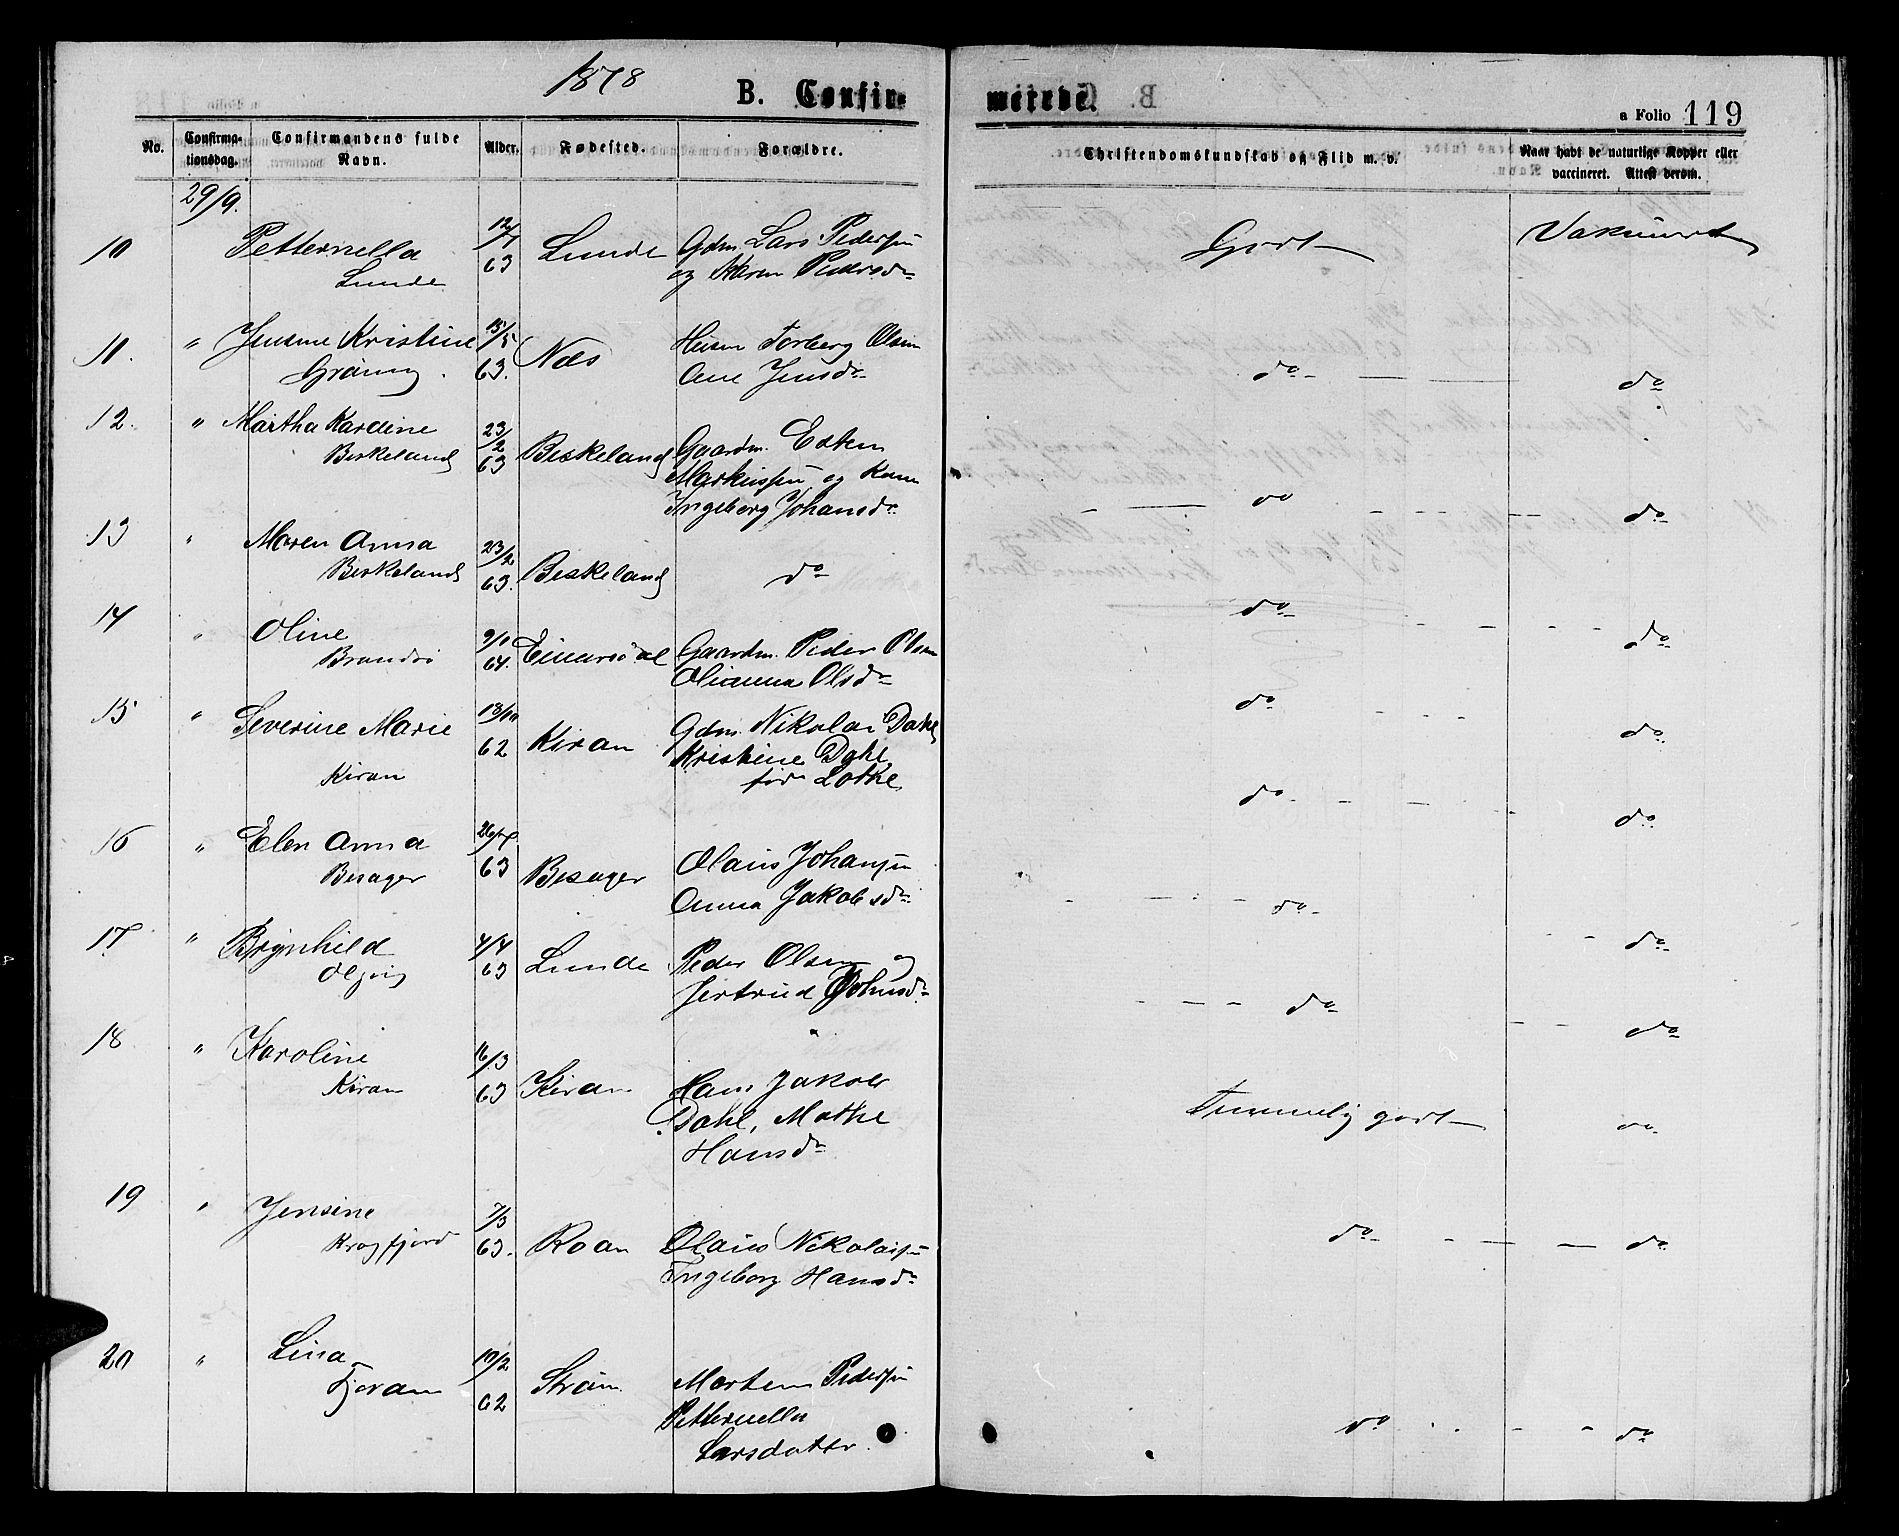 1878
B. Confir- merede.
a Folio 119
No. Confirma-tionsdag. Confirmandens fulde Navn. Alder. Fødested. Forældre. Christendomskundskab og Flid m. v. Naar havt de naturlige Kopper eller vaccineret. Attest derom.
29/9.
10 Petternella 12/1 Lunde Gdm. Lars Pedersen Godt
Lunde 63 og Karen Pedersdr
11. " Jensine Kristine 15/5 Næs Husm Torberg Olsen
Grøning. 63. Ane Jensdr do do
12. " Martha Kardine 23/2 Beskeland Gaardm. Esten
Beskeland 63 Markussen og Karen
Ingeborg Johansdr do do
13 " Maren Anna 23/2 Beskeland do
Beskeland 63. do do
14 " Oline 9/10 Einarsdal Gaardm. Peder Olsen
Brandsø 64. Olianna Olsdr do do
15 " Severine Marie 13/10 Kiran Gdm. Nikolai Dahl
62 Kristine Dahl
Kiran født Lothe do do
16 " Elen Anna 26/4 Besager Olaus Johansen
Besager 63 Anna Jakobsdr do do
17. " Brynhild 4/4 Lunde Peder Olsen og
63 Jertrud Johnsdr do do
18 " Karoline 16/3 Kiran Hans Jakob
Kiran 63 Dahl, Mathe Temmelig godt do
Hansdr
19 " Jensine 7/3 Roan Olaus Nikolaisen do do
Kragfjord 63. Ingeborg Hansdr
20 " Lina 10/2 Strøm Morten Pedersen
Tjoran 62 Petternella
Larsdatter. do do